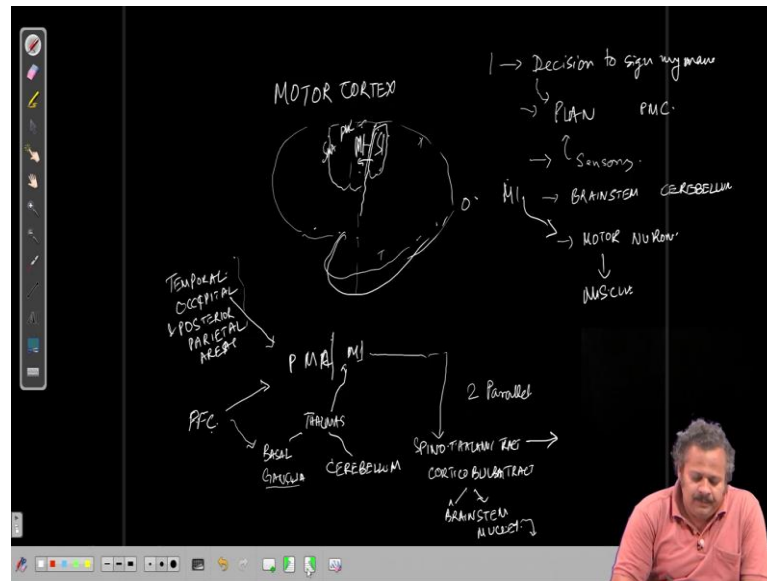 MOTOR CORTEX
PMC
M1
S1
T
O
1 → Decision to sign my name
→ PLAN PMC.
→ Sensory.
M1 → BRAINSTEM CEREBELLUM
→ MOTOR NURON.
MUSCLE
TEMPORAL
OCCIPITAL
& POSTERIOR
PARIETAL
AREAS
PMA M1
PFC.
THALMAS
BASAL
GANGLIA
CEREBELLUM
2 Parallel
SPINO-THALAMIC TRACT →
CORTICO BULBAR TRACT
BRAINSTEM
NUCLEI